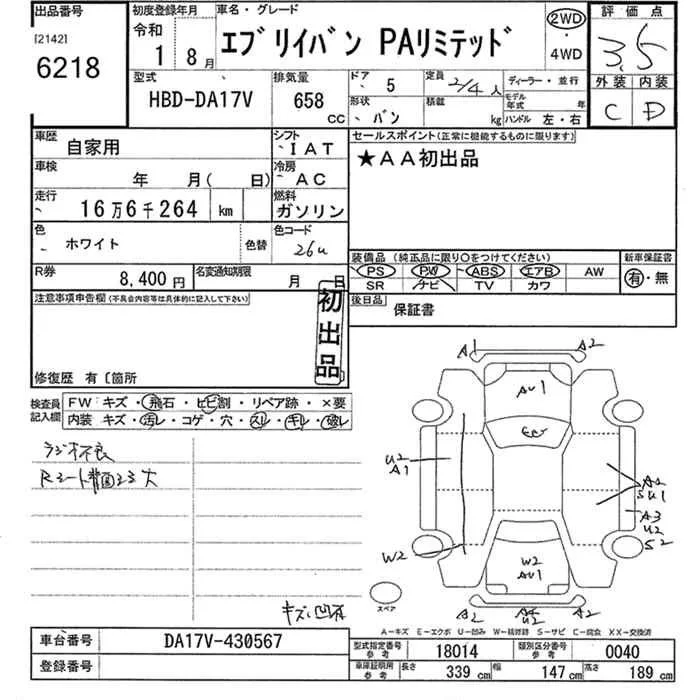 出品番号
[2142]
6218
初度登録年月
令和
1 8月
車名・グレード
エブリイバン PAリミテッド
2WD
・
4WD
評価点
3.5
外装 内装
C D
型式
HBD-DA17V
排気量
658
CC
ドア 5
形状 バン
定員 2/4人
積載 kg
ディーラー・並行
モデル年式 年
ハンドル 左・右
車歴 自家用
シフト IAT
車検 年 月( 日)
冷房 AC
走行 16万6千264 km
燃料 ガソリン
色 ホワイト 色替
色コード 26u
R券 8,400円
名変通知期限 月 日
セールスポイント(正常に機能するものに限ります)
★AA初出品
装備品(純正品に限り○をつけてください)
PS PW ABS エアB AW
SR ナビ TV カワ
新車保証書
有・無
後日品 保証書
注意事項申告欄(不具合内容等は具体的に記入して下さい)
初出品
修復歴 有〔箇所
検査員記入欄
FW キズ・飛石・ヒビ割・リペア跡・×要
内装 キズ・汚レ・コゲ・穴・スレ・キレ・破レ
ラジオ不良
Rシート背面ココ大
キズ、凹有
A1 A2
AU1
U2
A1
A2
SU1
A3
U2
S2
W2
W2
AU1
A2
U2
A2
スペア
A−キズ E−エクボ U−凹み W−補修跡 S−サビ C−腐食 XX−交換済
車台番号 DA17V-430567
登録番号
型式指定番号参考 18014
類別区分番号参考 0040
車庫証明用参考 長さ 339cm 幅 147cm 高さ 189cm